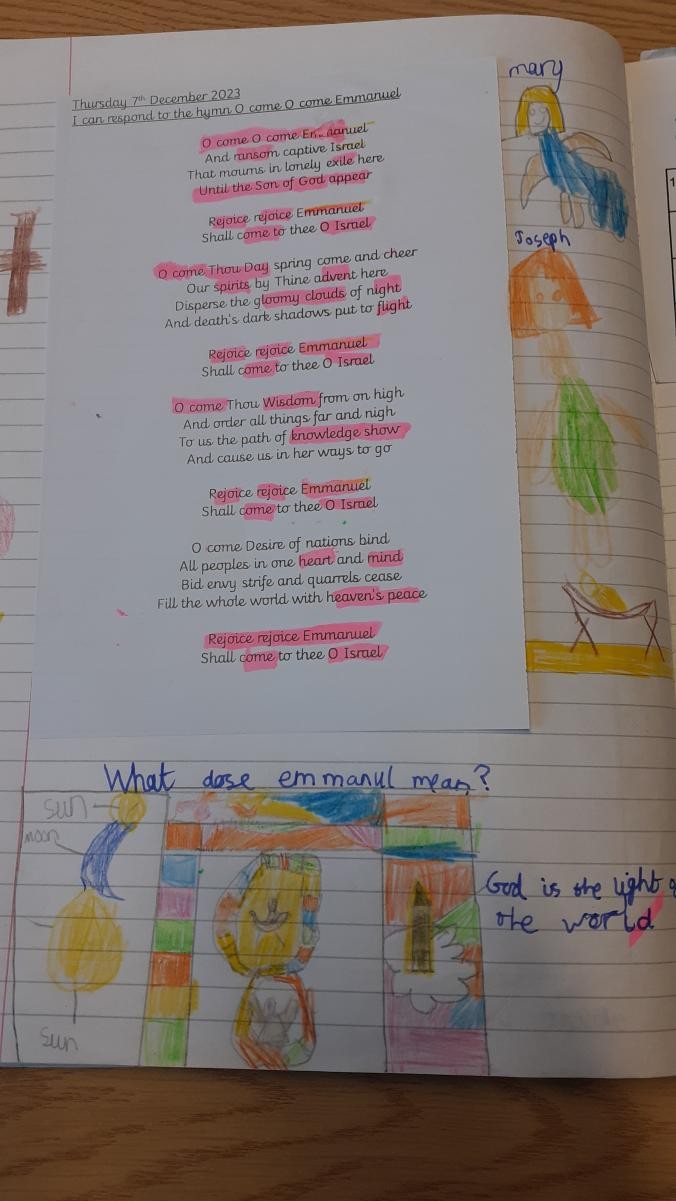 Thursday 7th December 2023
I can respond to the hymn O come O come Emmanuel
O come O come Emmanuel
And ransom captive Israel
That mourns in lonely exile here
Until the Son of God appear
Rejoice rejoice Emmanuel
Shall come to thee O Israel
O come Thou Day spring come and cheer
Our spirits by Thine advent here
Disperse the gloomy clouds of night
And death's dark shadows put to flight
Rejoice rejoice Emmanuel
Shall come to thee O Israel
O come Thou Wisdom from on high
And order all things far and nigh
To us the path of knowledge show
And cause us in her ways to go
Rejoice rejoice Emmanuel
Shall come to thee O Israel
O come Desire of nations bind
All peoples in one heart and mind
Bid envy strife and quarrels cease
Fill the whole world with heaven's peace
Rejoice rejoice Emmanuel
Shall come to thee O Israel
mary
Joseph
What dose emmanul mean?
sun
moon
sun
God is the light
the world
1